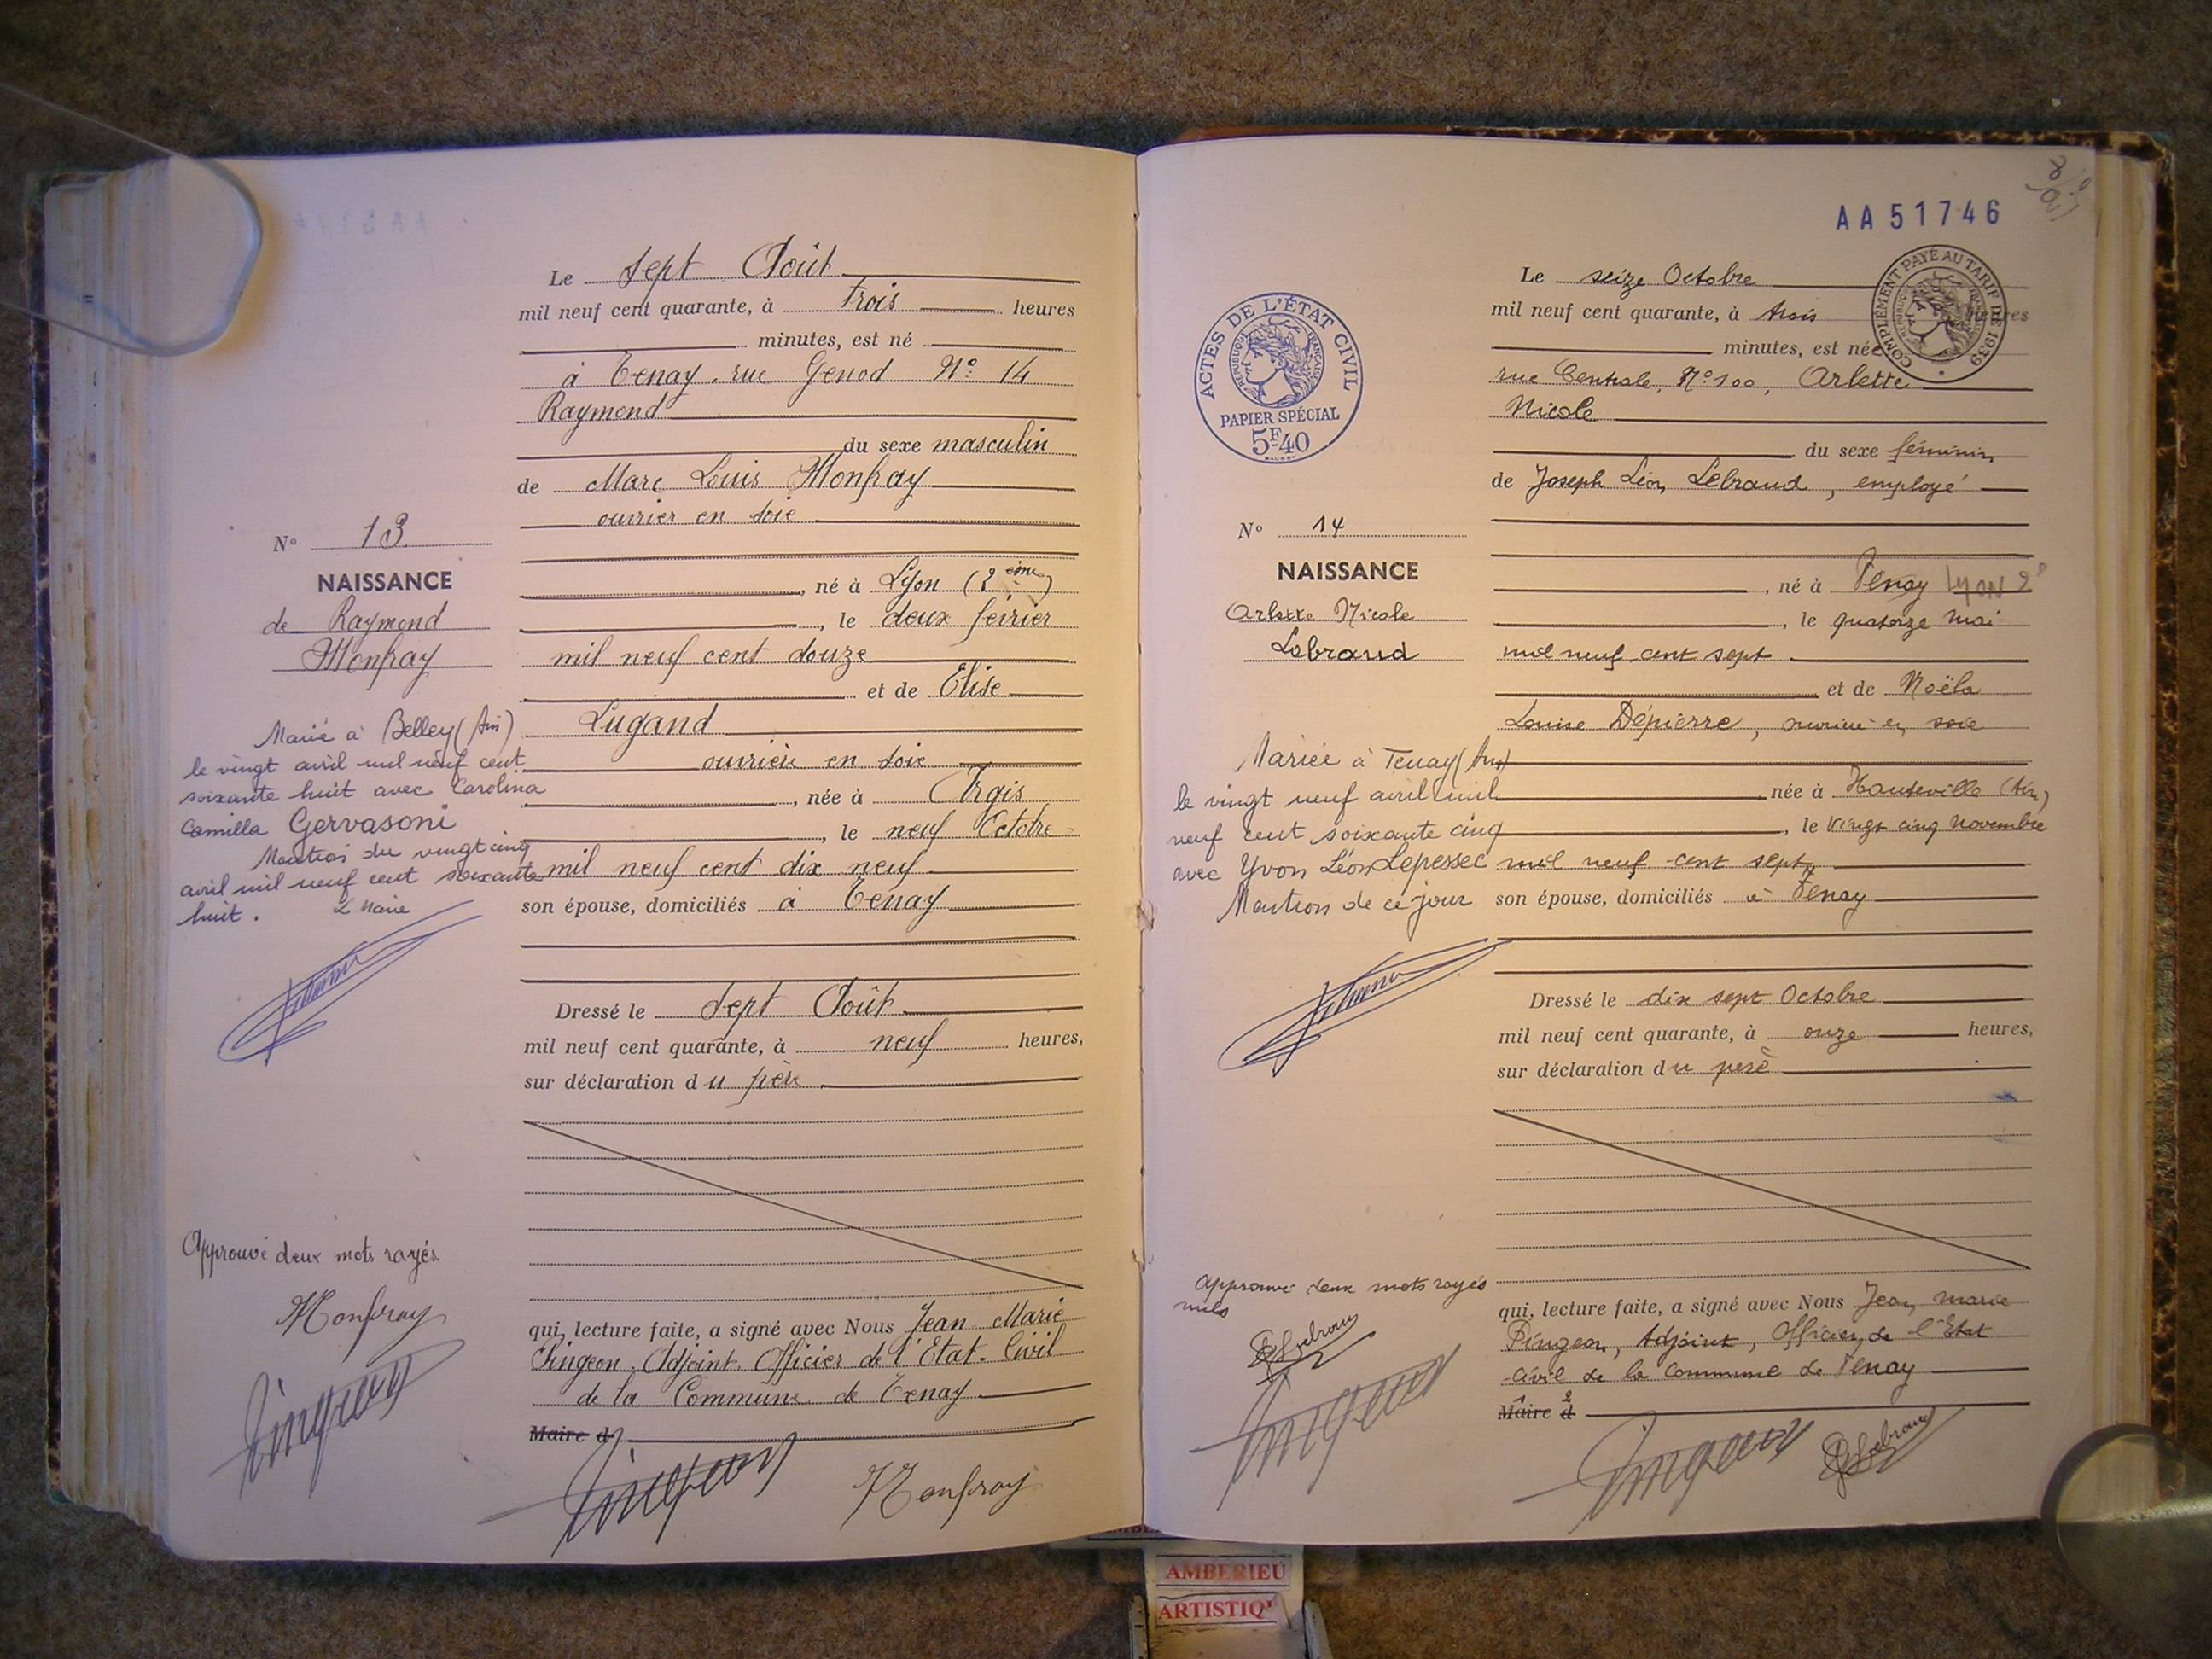 Le sept Août
mil neuf cent quarante, à trois heures
minutes, est né
à Tenay, rue Genod N° 14
Raymond
du sexe masculin
de Marc Louis Monfray
ouvrier en soie
né à Lyon (2ème)
, le deux février
mil neuf cent douze
et de Elise
Lugand
ouvrière en soie
, née à Argis
, le neuf Octobre
mil neuf cent dix neuf
son épouse, domiciliés à Tenay
Dressé le sept Août
mil neuf cent quarante, à neuf heures,
sur déclaration du père
qui, lecture faite, a signé avec Nous Jean Marie
Pingeon, Adjoint, Officier de l'Etat-Civil
de la Commune de Tenay
Maire d
Pingeon Monfray
N° 13
NAISSANCE
de Raymond
Monfray
Marié à Belley (Ain)
le vingt avril mil neuf cent
soixante huit avec Carolina
Camilla Gervasoni
Mention du vingt cinq
avril mil neuf cent soixante
huit. Le Maire
Approuvé deux mots rayés.
Monfray
Pingeon
AA 51746
COMPLÉMENT PAYÉ AU TARIF DE 1939
ACTES DE L'ÉTAT CIVIL
RÉPUBLIQUE FRANÇAISE
PAPIER SPÉCIAL
5F40
Le seize Octobre
mil neuf cent quarante, à trois heures
minutes, est née
rue Centrale, N° 100, Arlette
Nicole
du sexe féminin
de Joseph Léon Lebraud, employé
, né à Tenay LYON 2e
, le quatorze mai
mil neuf cent sept
et de Noëla
Louise Dépierre, ouvrière en soie
née à Hauteville (Ain)
, le vingt cinq novembre
mil neuf cent sept
son épouse, domiciliés à Tenay
Dressé le dix sept Octobre
mil neuf cent quarante, à onze heures,
sur déclaration du père
qui, lecture faite, a signé avec Nous Jean Marie
Pingeon, Adjoint, Officier de l'Etat
-civil de la commune de Tenay
Maire d
Pingeon Lebraud
N° 14
NAISSANCE
Arlette Nicole
Lebraud
Mariée à Tenay (Ain)
le vingt neuf avril mil
neuf cent soixante cinq
avec Yvon Léon Lepessec
Mention de ce jour
Approuvé deux mots rayés
nuls
Lebraud
Pingeon
AMBERIEU
ARTISTIQ